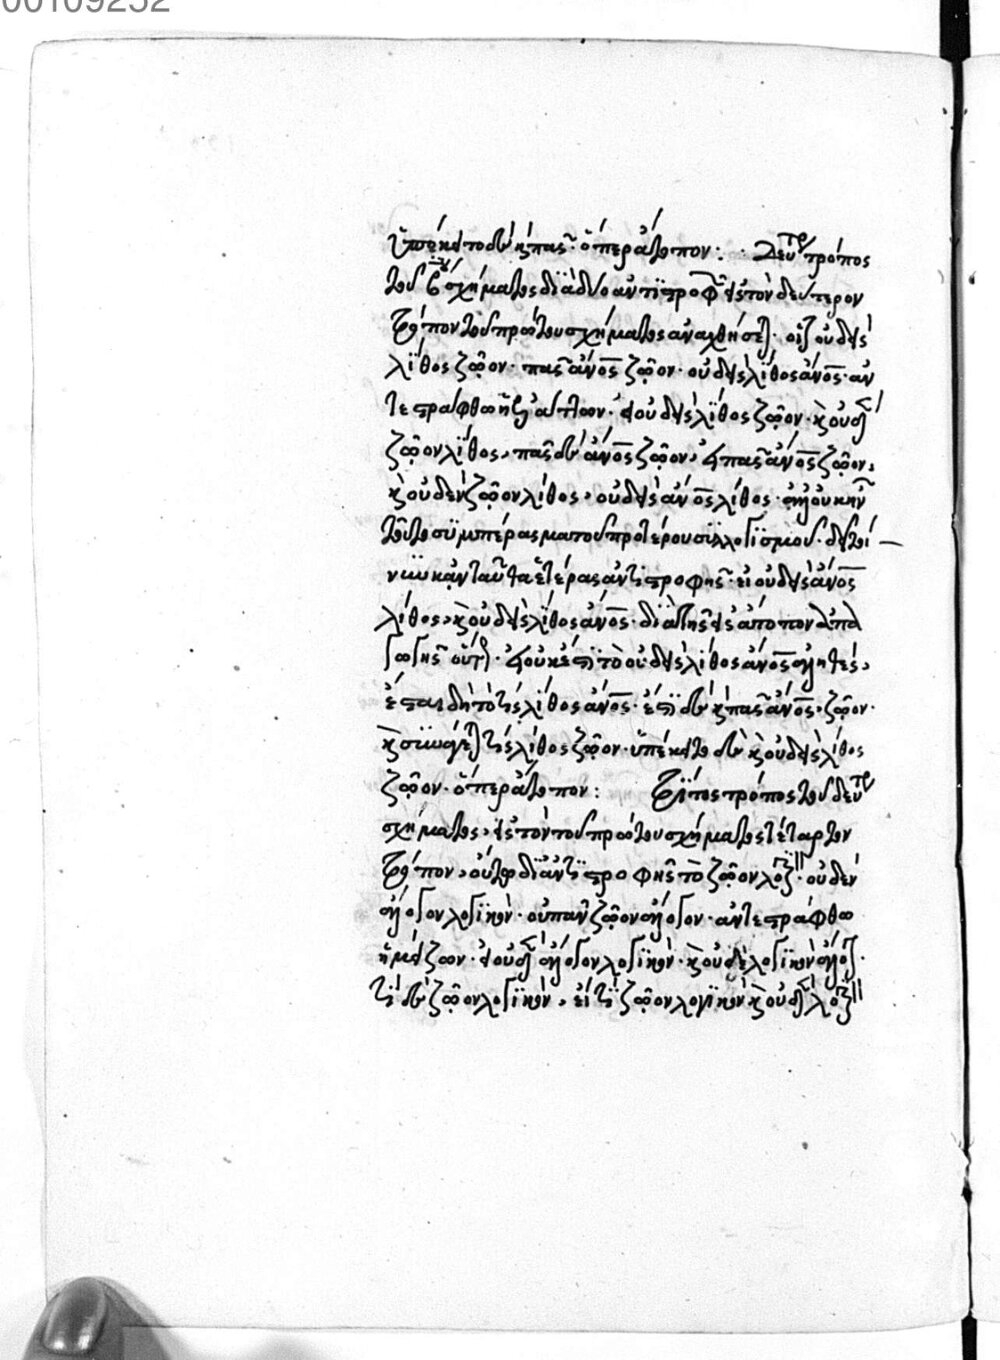 00109252
ὑπέκειτο δὲ καὶ πᾶς· ὅπερ ἄτοπον: · Δεύτερος τρόπος
τοῦ β´ου σχήματος διὰ δύο ἀντιστροφῶν εἰς τὸν δεύτερον
τρόπον τοῦ πρώτου σχήματος ἀναχθήσεται· οἷον οὐδεὶς
λίθος ζῷον· πᾶς ἄνος ζῷον· οὐδεὶς λίθος ἄνος· ἀν
τεστράφθω ἡ μείζων αὐτῶν· εἰ οὐδεὶς λίθος ζῷον· καὶ οὐδὲν
ζῷον λίθος, πᾶς δὲ ἄνος ζῷον, εἰ πᾶς ἄνος ζῷον,
καὶ οὐδὲν ζῷον λίθος, οὐδεὶς ἄνος λίθος· ἀλλ' οὐκ ἦν
τοῦτο συμπέρασμα τοῦ προτέρου συλλογισμοῦ· δεῖ τοί
νυν κἀνταῦθα ἑτέρας ἀντιστροφῆς· εἰ οὐδεὶς ἄνος
λίθος, καὶ οὐδεὶς λίθος ἄνος· διὰ τῆς εἰς ἄτοπον ἀπα
γωγῆς οὕτως· εἰ οὐκ ἔστι τὸ οὐδεὶς λίθος ἄνος ἀληθές,
ἔσται δὴ τὸ τὶς λίθος ἄνος· ἔστι δὲ καὶ πᾶς ἄνος, ζῷον·
καὶ συνάγεται τὶς λίθος ζῷον· ὑπέκειτο δὲ καὶ οὐδεὶς λίθος
ζῷον· ὅπερ ἄτοπον: Τρίτος τρόπος τοῦ δευτέρου
σχήματος, εἰς τὸν τοῦ πρώτου σχήματος τέταρτον
τρόπον, οὕτω δι' ἀντιστροφῆς τὸ ζῷον· οὐδὲν
ἄλογον λογικόν· οὐ πᾶν ζῷον ἄλογον· ἀντεστράφθω
ἡ μείζων· εἰ οὐδὲν ἄλογον λογικόν· καὶ οὐδὲν λογικὸν ἄλογον·
τὶ δὲ ζῷον λογικόν, εἰ τὶ ζῷον λογικὸν καὶ οὐδὲν